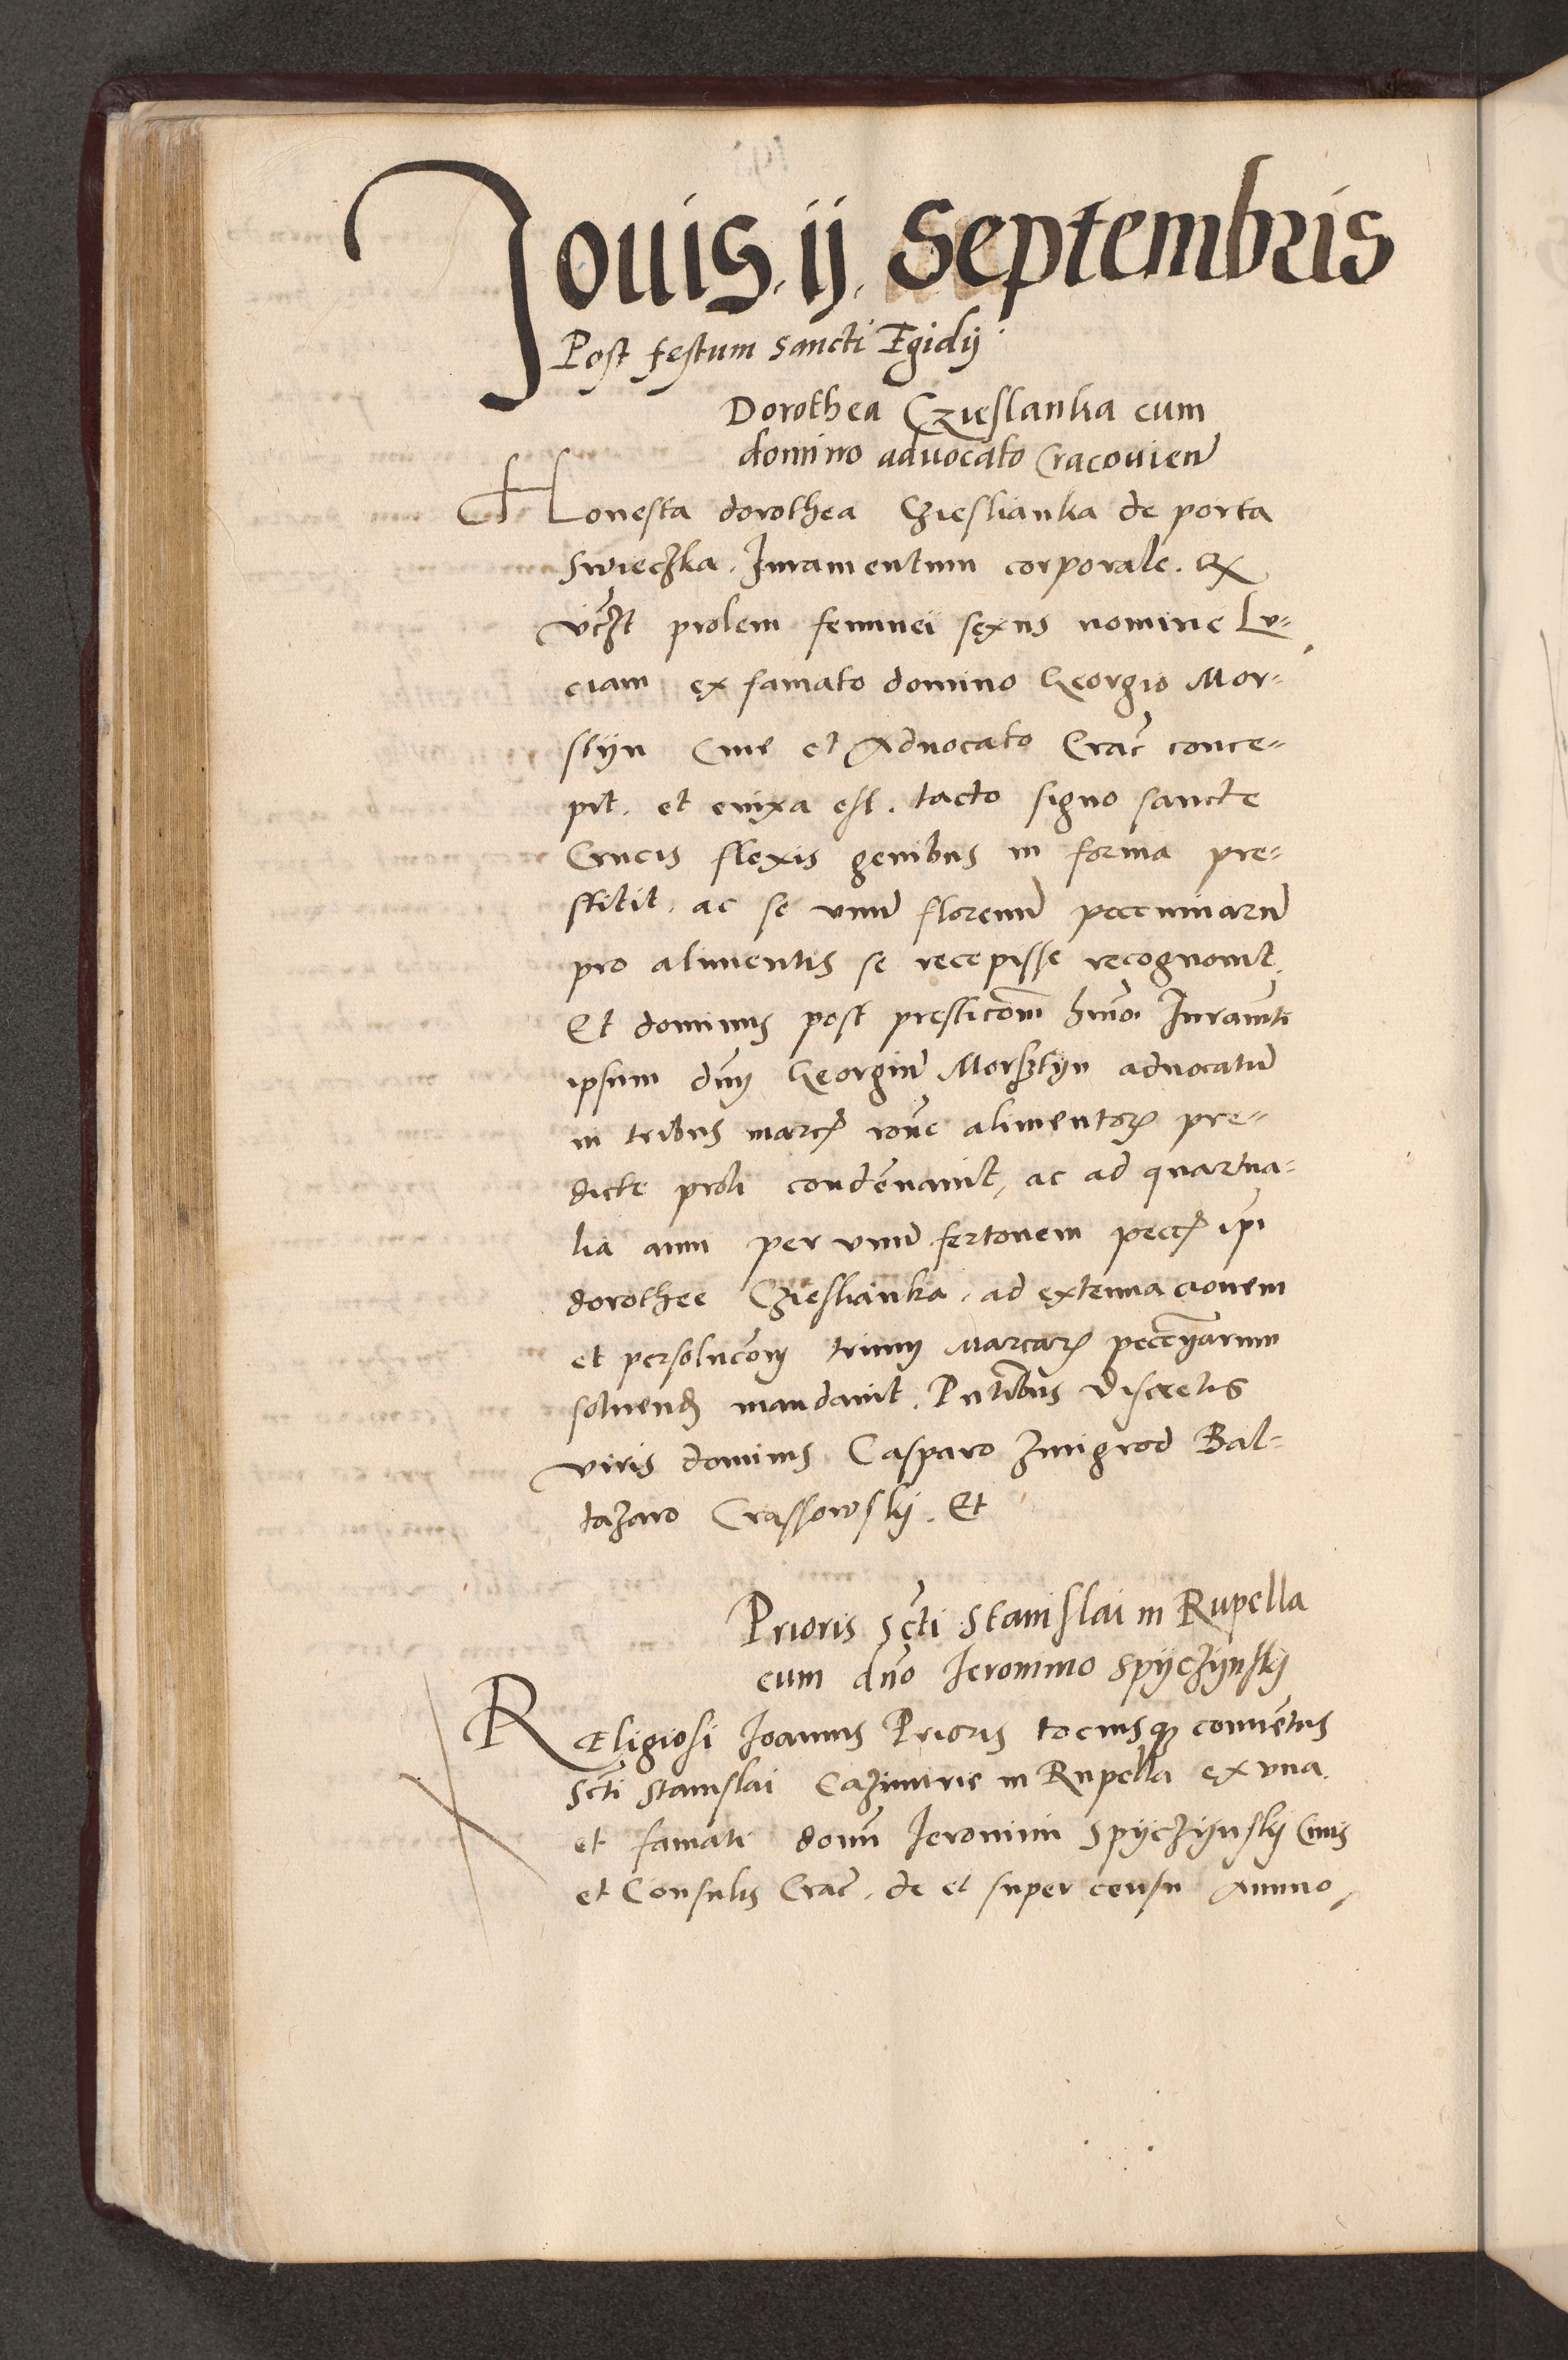 Jouis . ij . Septembris
Post festum sancti Egidij
Dorothea Czieslanka cum
domino aduocato Cracouien̄
Honesta dorothea Czieslianka de porta
Swieczka . Juramentum corporale .
prolem feminei sexus nomine Lu-
ciam ex famato domino Georgio Mor-
styn Ciue et Aduocato Crac̄ conce-
pit . et enixa est . tacto signo sancte
Crucis flexis genibus in forma pre-
stitit . ac se vnū florenū peccuniarū
pro alimentis se recepisse recognouit .
Et dominus post prestic̄om hmōi Juramti
ipsum dnm Georgiū Morsztyn aduocatū
in tribus marc̄ rōne alimentor̄ pre-
dicte proli condēnauit, ac ad quartua-
lia anni per vnū fertonem pecc̄ ip̄i
dorothee Czieslianka . ad extenuacionem
et persoluc̄om trium Marcar̄ peccn̄iarum
soluend̄ mandauit . Pn̄tibus discretis
viris dominis Casparo Zmigrod Bal-
tazaro Crassowskij . Et
Prioris Sc̄ti Stanislai in Rupella
cum dn̄o Jeronimo Spyczynskij
Religiosi Joannis Prioris tociusq̄ conuētus
Sc̄ti Stanislai Cazimirie in Rupella ex vna
et famati domn̄ Jeronimi Spyczynskij Ciuis
et Consulis Crac̄ . de et super censu Annuo,